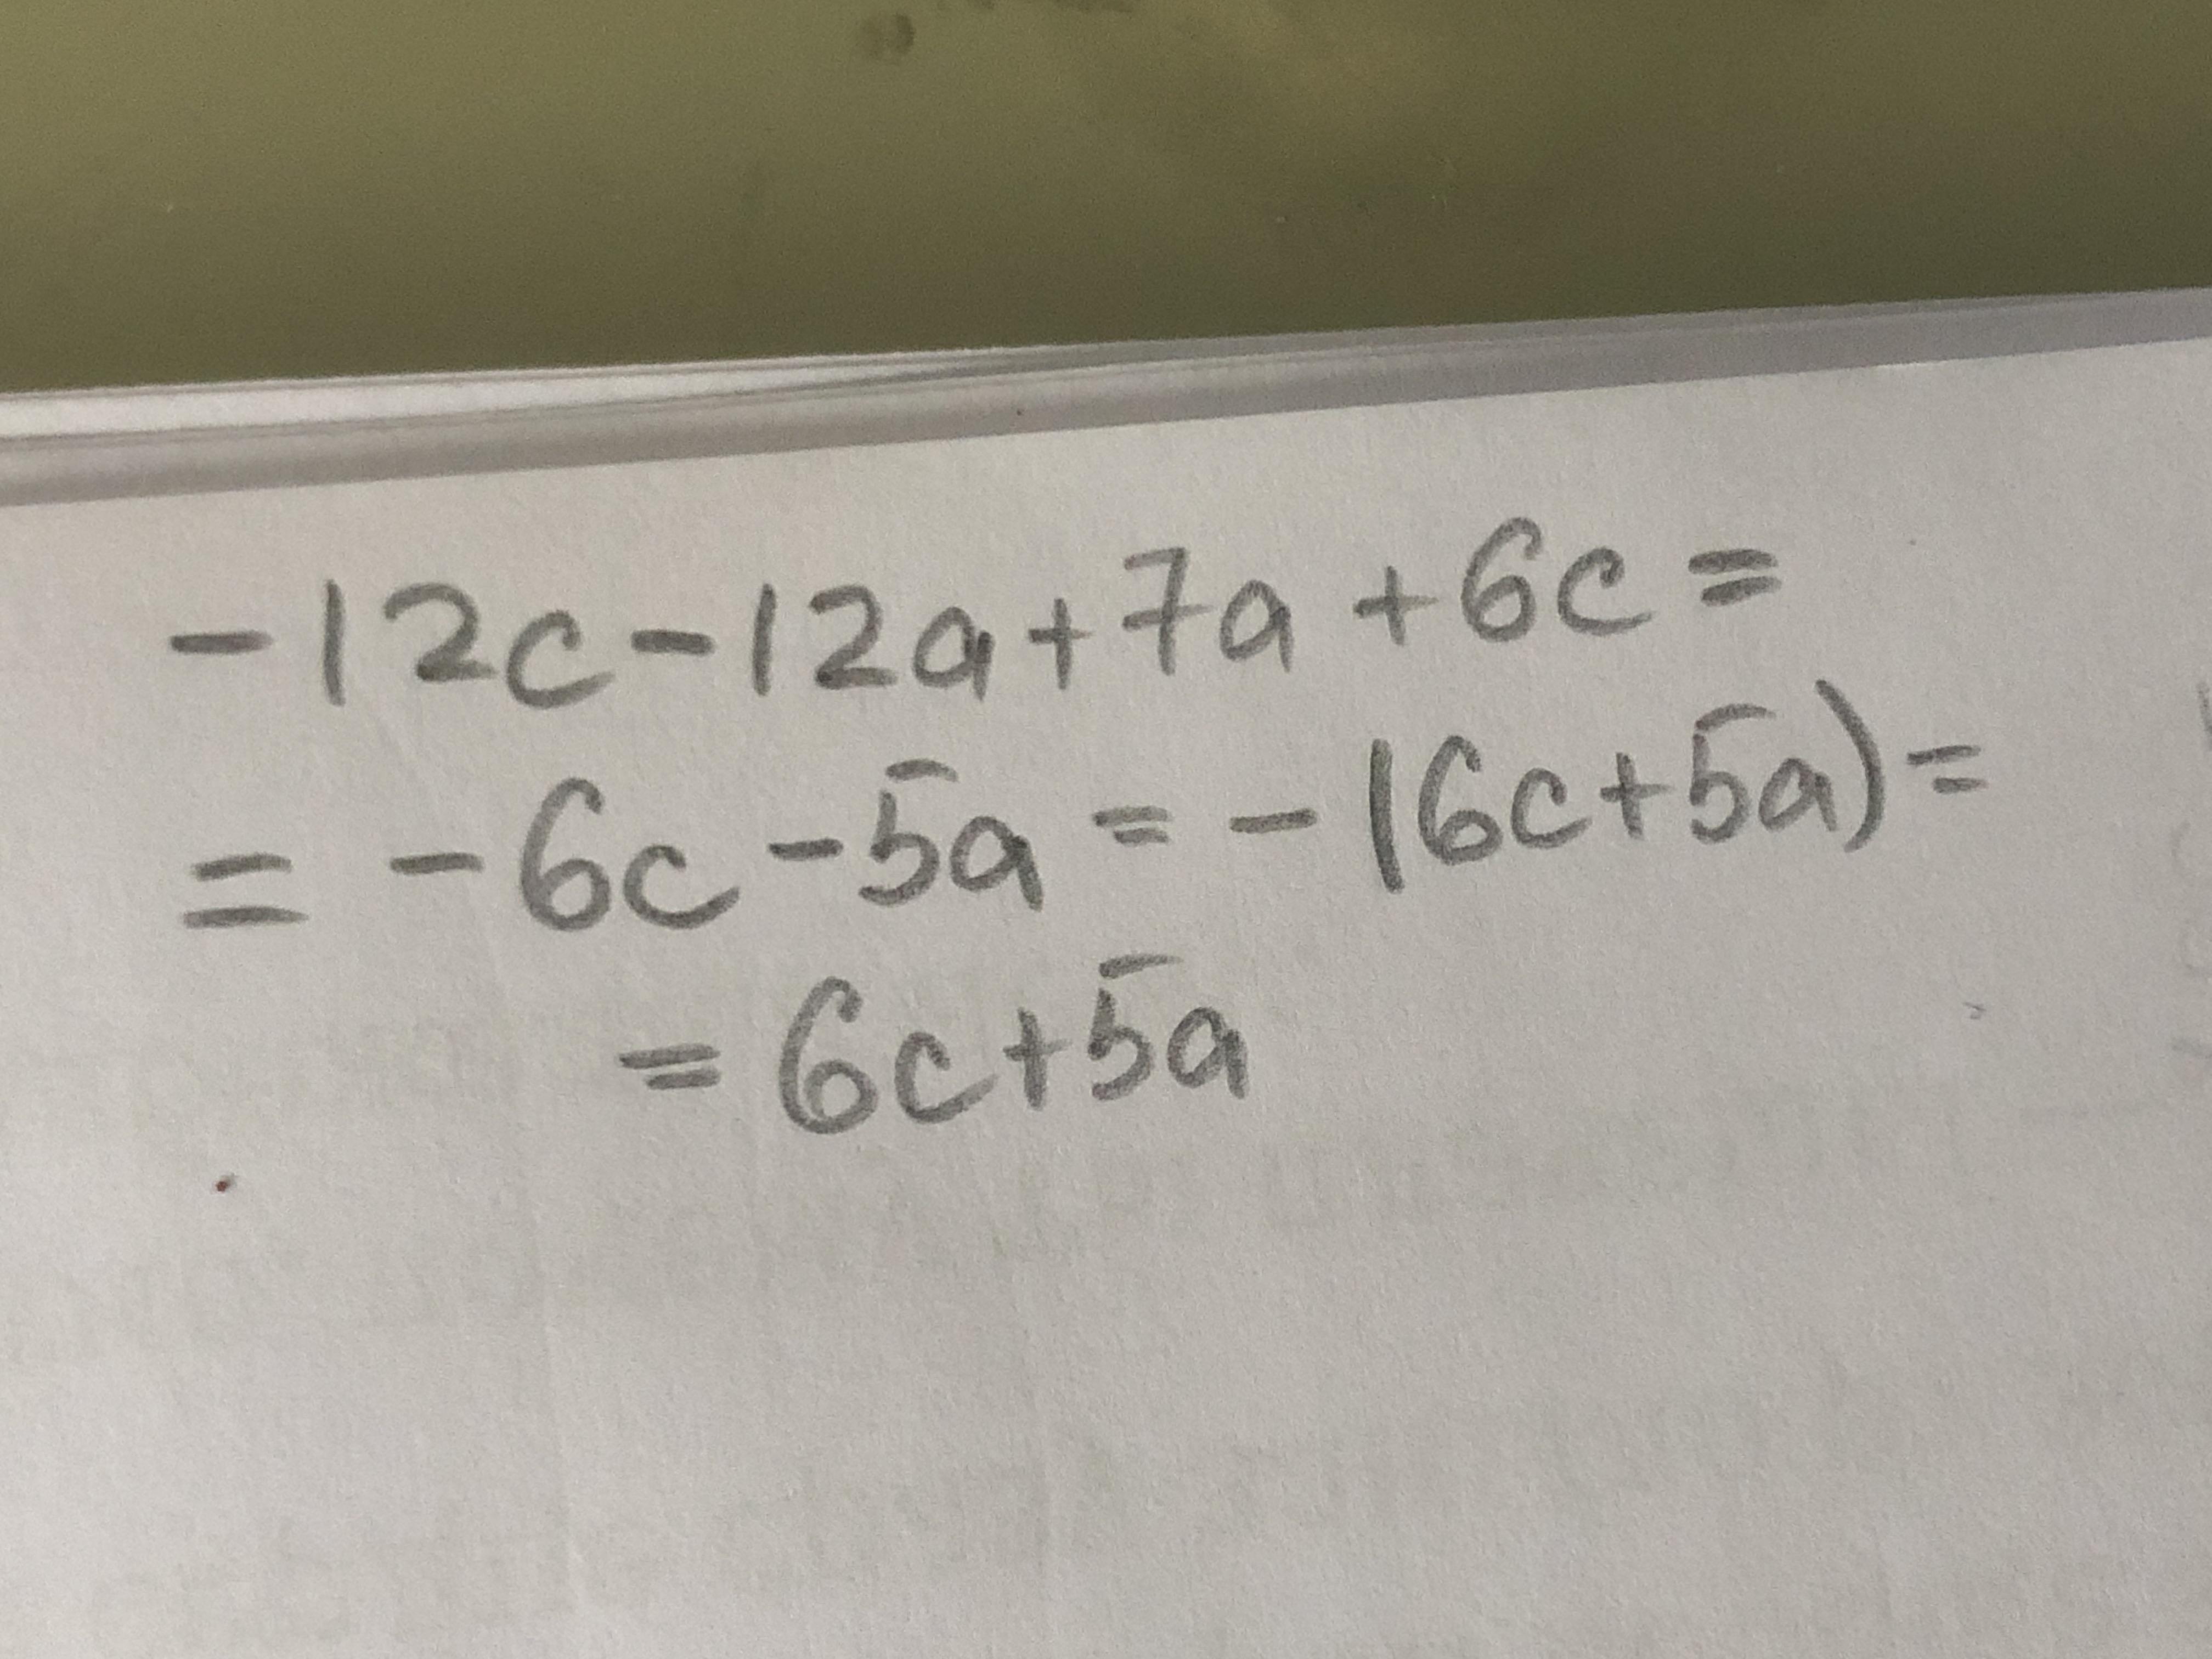 -12c-12a+7a+6c=
= -6c-5a = -(6c+5a)=
= 6c+5a